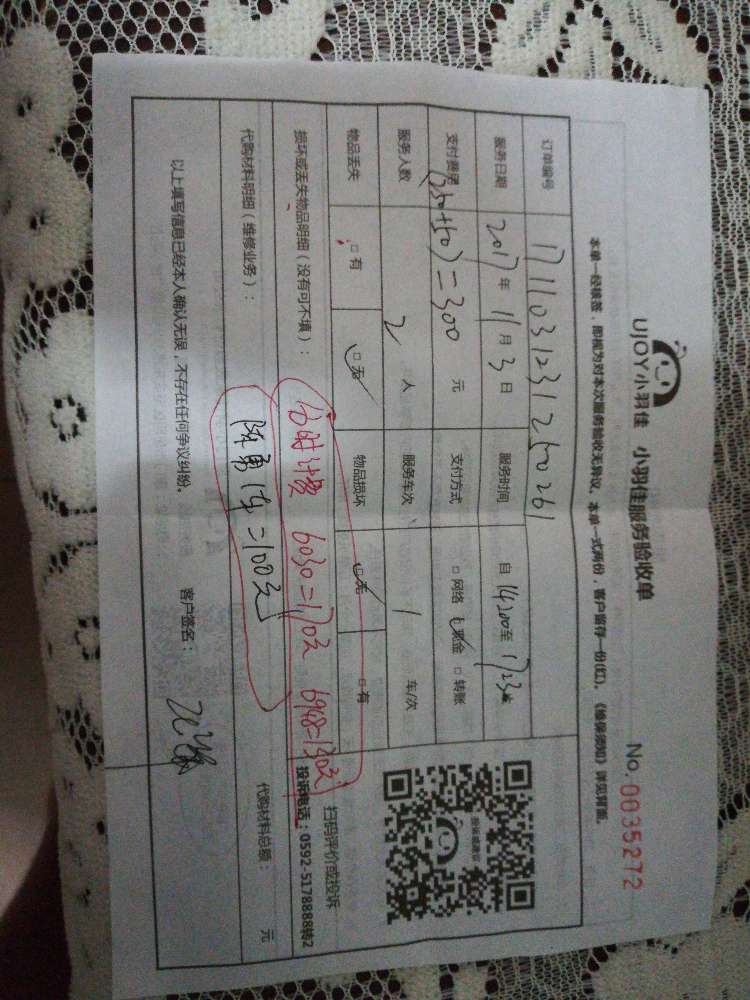 UJOY小羽佳 小羽佳服务验收单
No.0035272
本单一经接签，即视为对本次服务验收无异议。本单一式两份，客户留存一份(红)。《维保须知》详见背面。
订单编号 1711031231250261
服务日期 2017年 11月 3日 服务时间 自 14:00至 17:23
支付费用 (250+50)=300 元 支付方式 □网络 □现金 □转账
服务人数 2 人 服务车次 1 车/次
物品丢失 □有 □无 物品损坏 □无 □有
损坏或丢失物品明细（没有可不填）：
台时计费 6030=170元 6948=130元
扫码评价或投诉
投诉电话：0592-5178888转2
代购材料明细（维修业务）：
陈勇 1午=100元
代购材料总额： 元
以上填写信息已经本人确认无误，不存在任何争议纠纷。 客户签名：